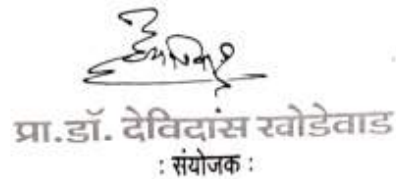 प्रा.डॉ. देविदास खोडेवाड
: संयोजक :